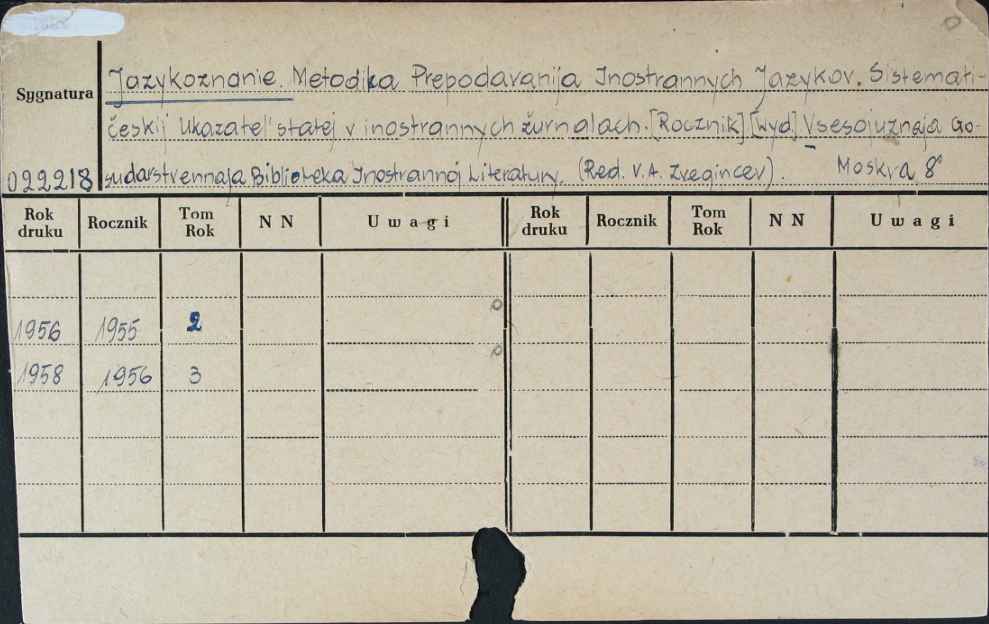 Jazykoznanie. Metodika Prepodavanija Inostrannych Jazykov. Sistemati-
Sygnatura
českij Ukazatel' statej v inostrannych žurnalach. [Rocznik] [Wyd] Vsesojuznaja Go-
022218 sudarstvennaja Biblioteka Inostrannoj Literatury. (Red. V.A. Zvegincev). Moskva, 8°
Rok druku Rocznik Tom Rok N N Uwagi Rok druku Rocznik Tom Rok N N Uwagi
1956 1955 2
1958 1956 3